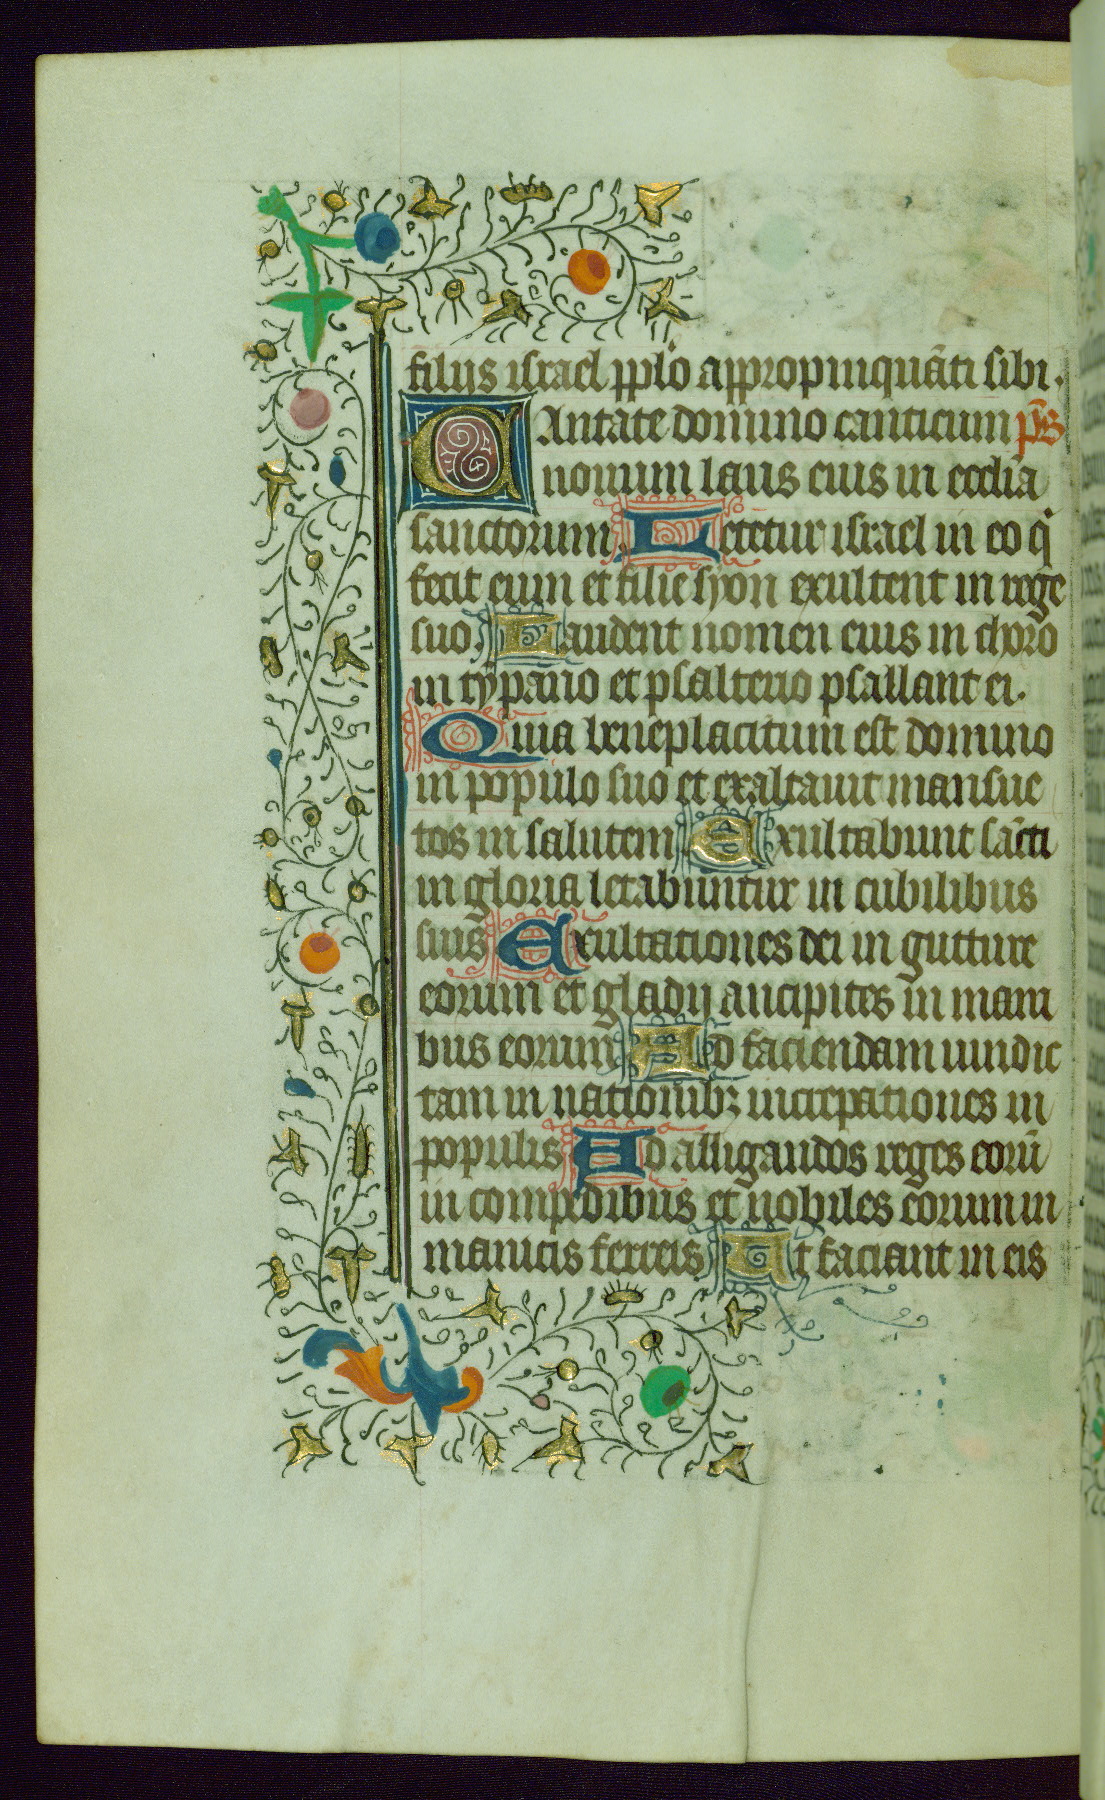 filijs israel pplo appropinquãti sibi.
Cantate domino canticum ps̃
nouum laus eius in ecclia
sanctorum Letetur israel in eo q̇
fecit eum et filie syon exultent in rege
suo Laudent nomen eius in choro
in tỹpano et psalterio psallant ei.
Quia beneplacitum est domino
in populo suo et exaltauit mansue
tos in salutem Exultabunt sãcti
in gloria letabuntur in cubilibus
suis Exultationes dei in gutture
eorum et gladij ancipites in mani
bus eorum Ad faciendam uindic
tam in nationibꝫ increpationes in
populis Ad alligandos reges eorũ
in compedibus et nobiles eorum in
manicis ferreis Ut faciant in eis